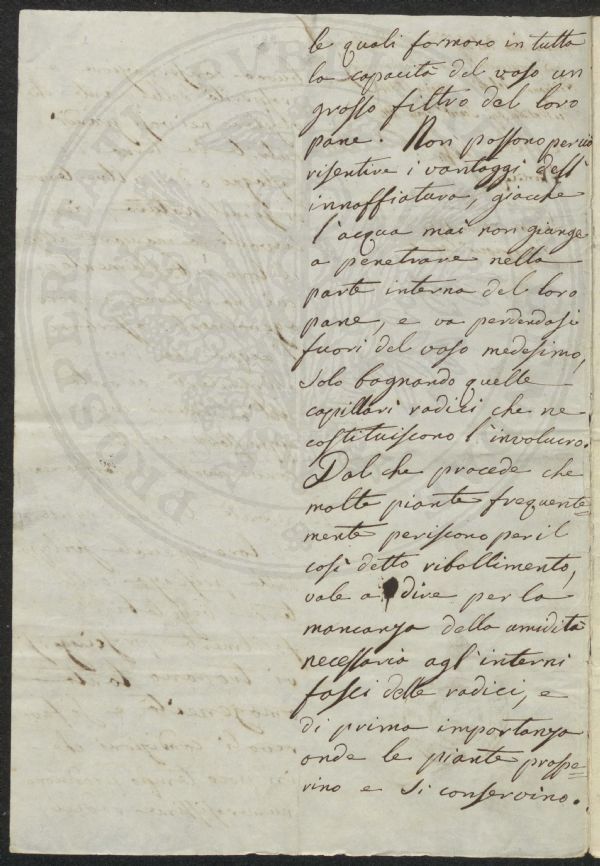 le quali formano in tutta
la capacità del vaso un
grosso filtro del loro
pane. Non possono perciò
risentire i vantaggi dell'
innaffiatura, giacche
l'acqua mai non giunge
a penetrare nella
parte interna del loro
pane, e va perdendosi
fuori del vaso medesimo,
solo bagnando quelle
capillari radici che ne
costituiscono l'involucro.
Dal che procede che
molte piante frequente=
mente periscono per il
così detto ribollimento,
vale a dire per la
mancanza della umidità
necessaria agl'interni
fasci delle radici, e
di prima importanza
onde le piante prospe=
rino e si conservino.
PROSPERITATI PUBL